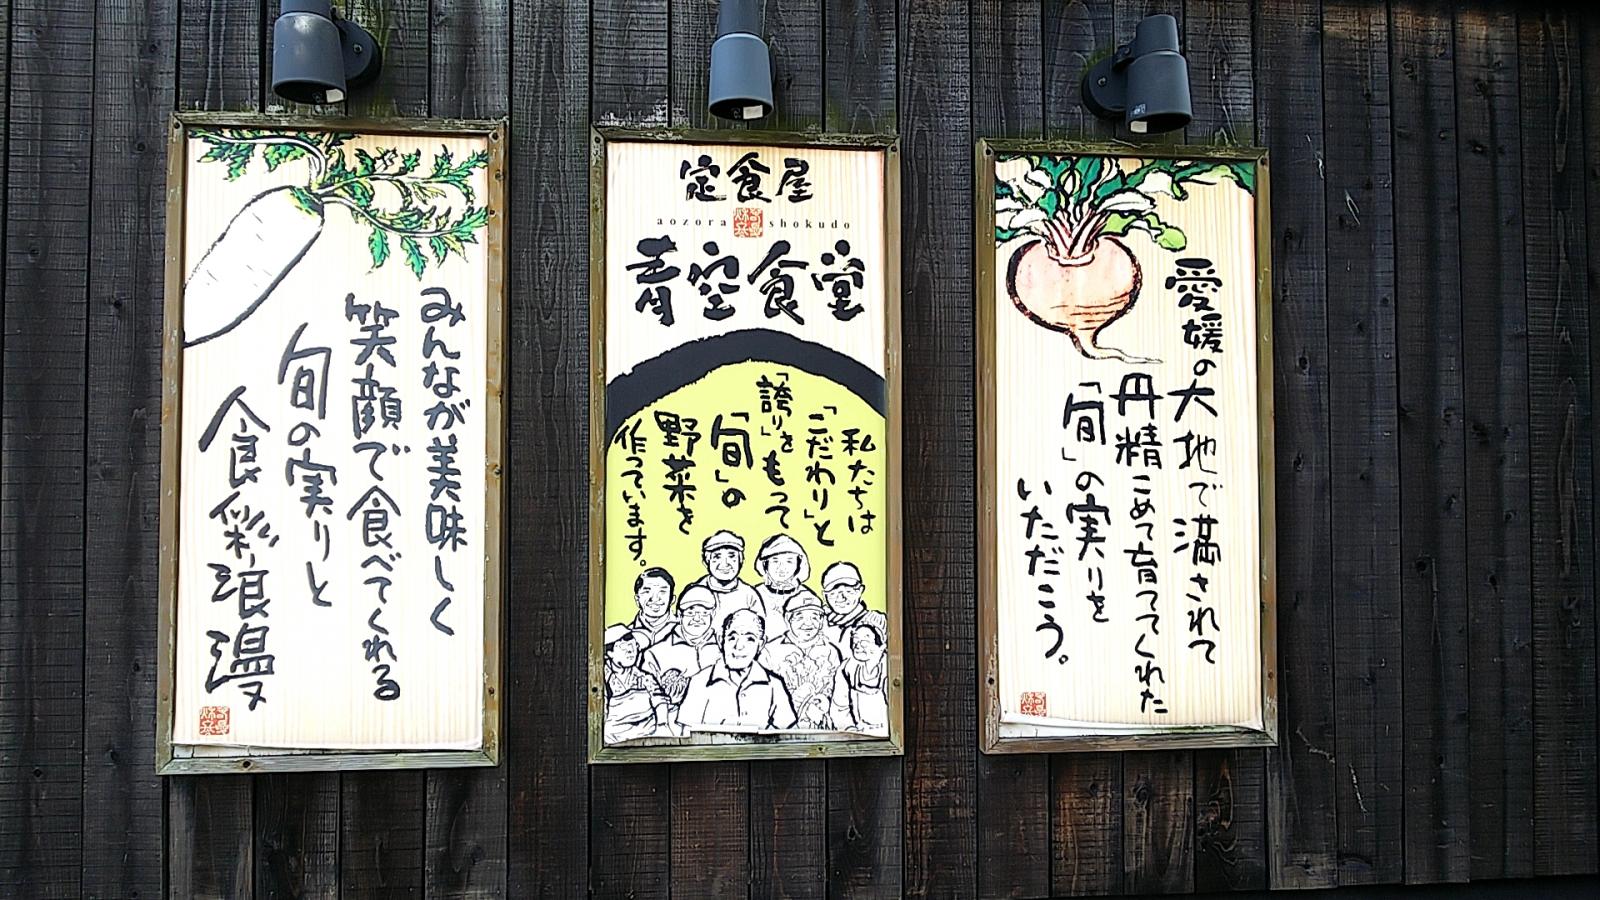 みんなが美味しく
笑顔で食べてくれる
旬の実りと
食彩浪漫
定食屋
aozora shokudo
青空食堂
私たちは
「こだわり」と
「誇り」をもって
「旬」の
野菜を
作っています。
愛媛の大地で満されて
丹精こめて育ててくれた
「旬」の実りを
いただこう。